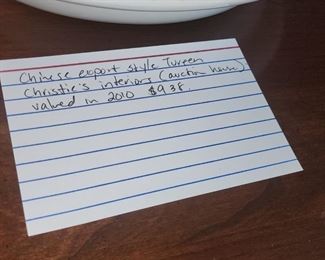 Chinese export style Tureen
Christie's interiors (auction house)
valued in 2010 $938.